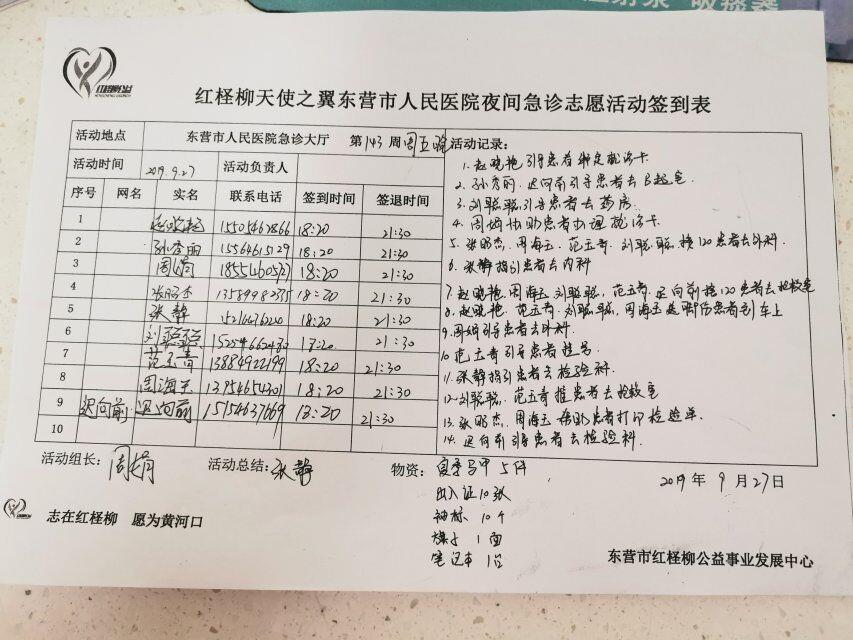 红柽柳天使之翼东营市人民医院夜间急诊志愿活动签到表
活动地点 东营市人民医院急诊大厅 第143周周五晚
活动时间 2019.9.27 活动负责人
序号 网名 实名 联系电话 签到时间 签退时间
1 赵晓艳 18:20 21:30
2 孙秀丽 15564615129 18:20 21:30
3 周娟 18554605127 18:20 21:30
4 张昭杰 13589982735 18:20 21:30
5 张静 18:20 21:30
6 刘聪聪 15254662480 18:20 21:30
7 范玉青 13884922199 18:20 21:30
8 周海玉 13954654301 18:20 21:30
9 迟向前 迟向前 15154637669 18:20 21:30
10
活动记录:
1. 赵晓艳引导患者绑定就诊卡
2. 孙秀丽、迟向前引导患者去B超室
3. 刘聪聪引导患者去药房
4. 周娟协助患者办理就诊卡
5. 张昭杰、周海玉、范玉青、刘聪聪接120患者去外科.
6. 张静指引患者去内科
7. 赵晓艳、周海玉、刘聪聪、范玉青、迟向前接120患者去抢救室
8. 赵晓艳、范玉青、刘聪聪、周海玉 患者到车上
9. 周娟引导患者去外科.
10. 范玉青引导患者挂号
11. 张静指引患者去检验科.
12. 刘聪聪、范玉青推患者去抢救室
13. 张昭杰、周海玉帮助患者打印检验单.
14. 迟向前引导患者去检验科.
活动组长: 周娟 活动总结: 张静 物资: 夏季马甲 5件
出入证10张
袖标 10个
旗子 1面
笔记本 1
2019 年 9 月 27 日
志在红柽柳 愿为黄河口
东营市红柽柳公益事业发展中心